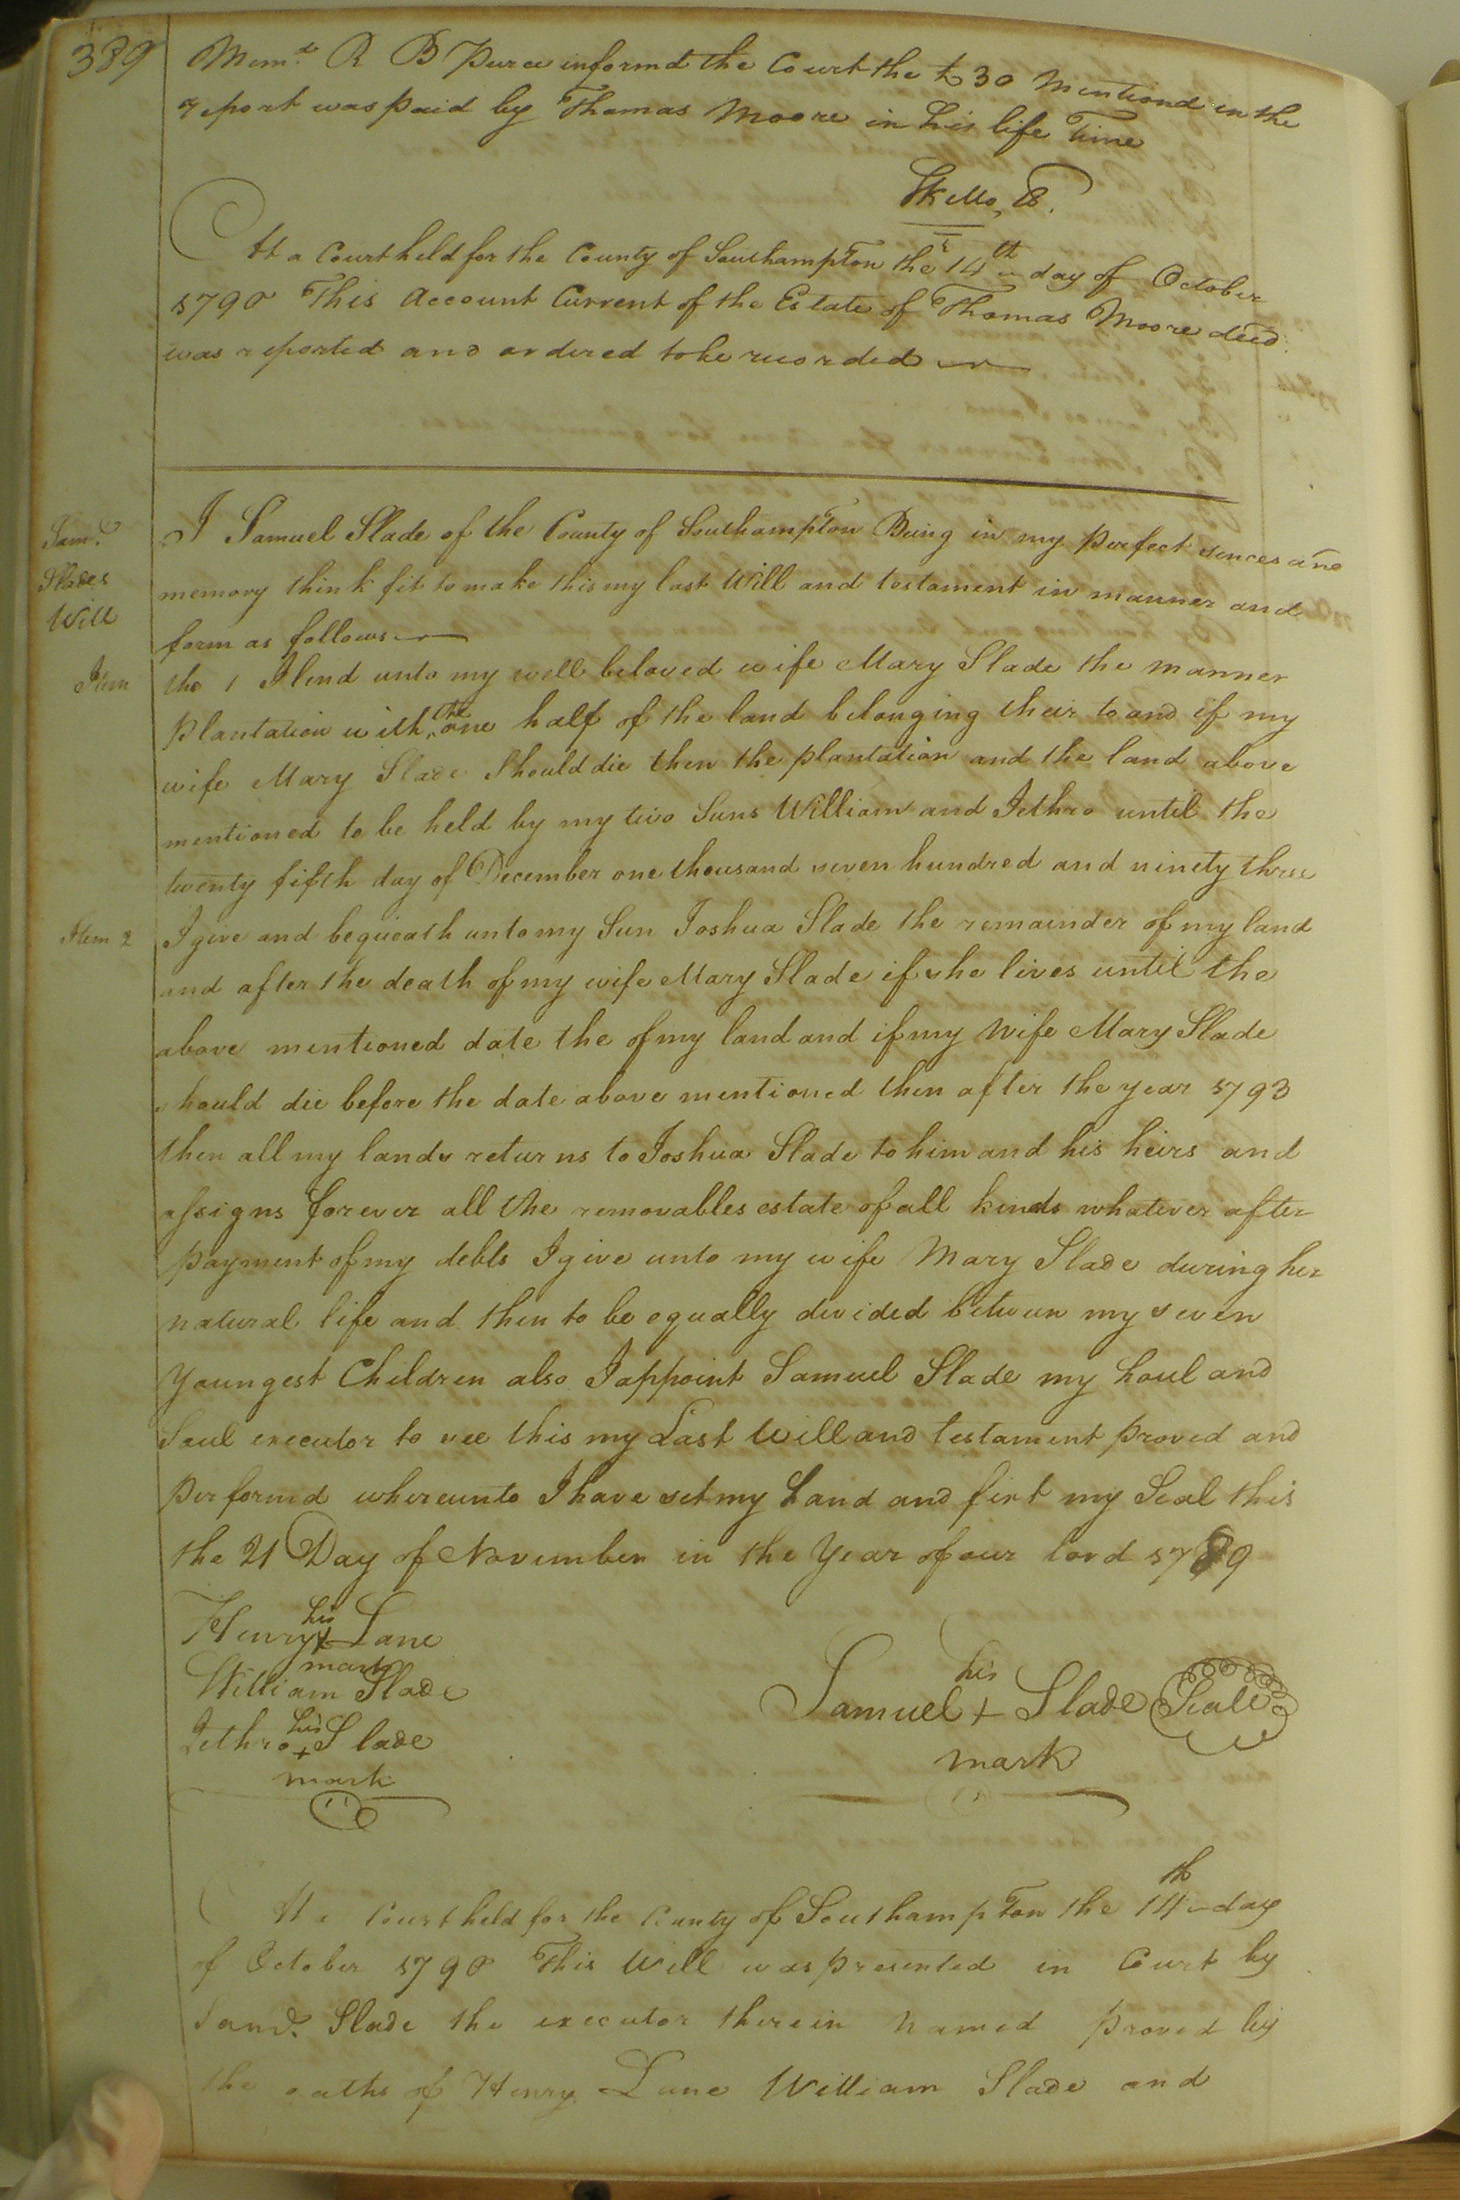 389
Memd. R B Purce informd the Court the £30 Mentiond in the
report was paid by Thomas Moore in his life Time
At a Court held for the County of Southampton the 14th day of October
1790 This Account Current of the Estate of Thomas Moore decd.
was reported and ordered to be recorded
Samd.
Slades
Will
I Samuel Slade of the County of Southampton Being in my perfect sences and
memory think fit to make this my last Will and testament in manner and
form as follows
Item
the 1 I lend unto my well beloved wife Mary Slade the manner
plantation with the one half of the land belonging their to and if my
wife Mary Slade Should die then the plantation and the land above
mentioned to be held by my two Suns William and Jethro until the
twenty fifth day of December one thousand seven hundred and ninety three
Item 2
I give and begueath unto my Sun Joshua Slade the remainder of my land
and after the death of my wife Mary Slade if she lives until the
above mentioned date the of my land and if my Wife Mary Slade
should die before the date above mentioned then after the year 1793
then all my lands returns to Joshua Slade to him and his heirs and
assigns forever all the removables estate of all kinds whatever after
payment of my debts I give unto my wife Mary Slade during her
natural life and then to be equally devided between my seven
Youngest Children also I appoint Samuel Slade my houl and
Soul executor to see this my Last Will and testament proved and
performd whereunto I have set my hand and firt my Seal this
the 21 Day of November in the Year of our lord 1789
Henry his + Lane
mark
William Slade
Jethro his + Slade
mark
Samuel his + Slade Seale
mark
At a Court held for the County of Southampton the 14th day
of October 1790 This Will was presented in Court by
Samd. Slade the executor therein named proved by
the oaths of Henry Lane William Slade and